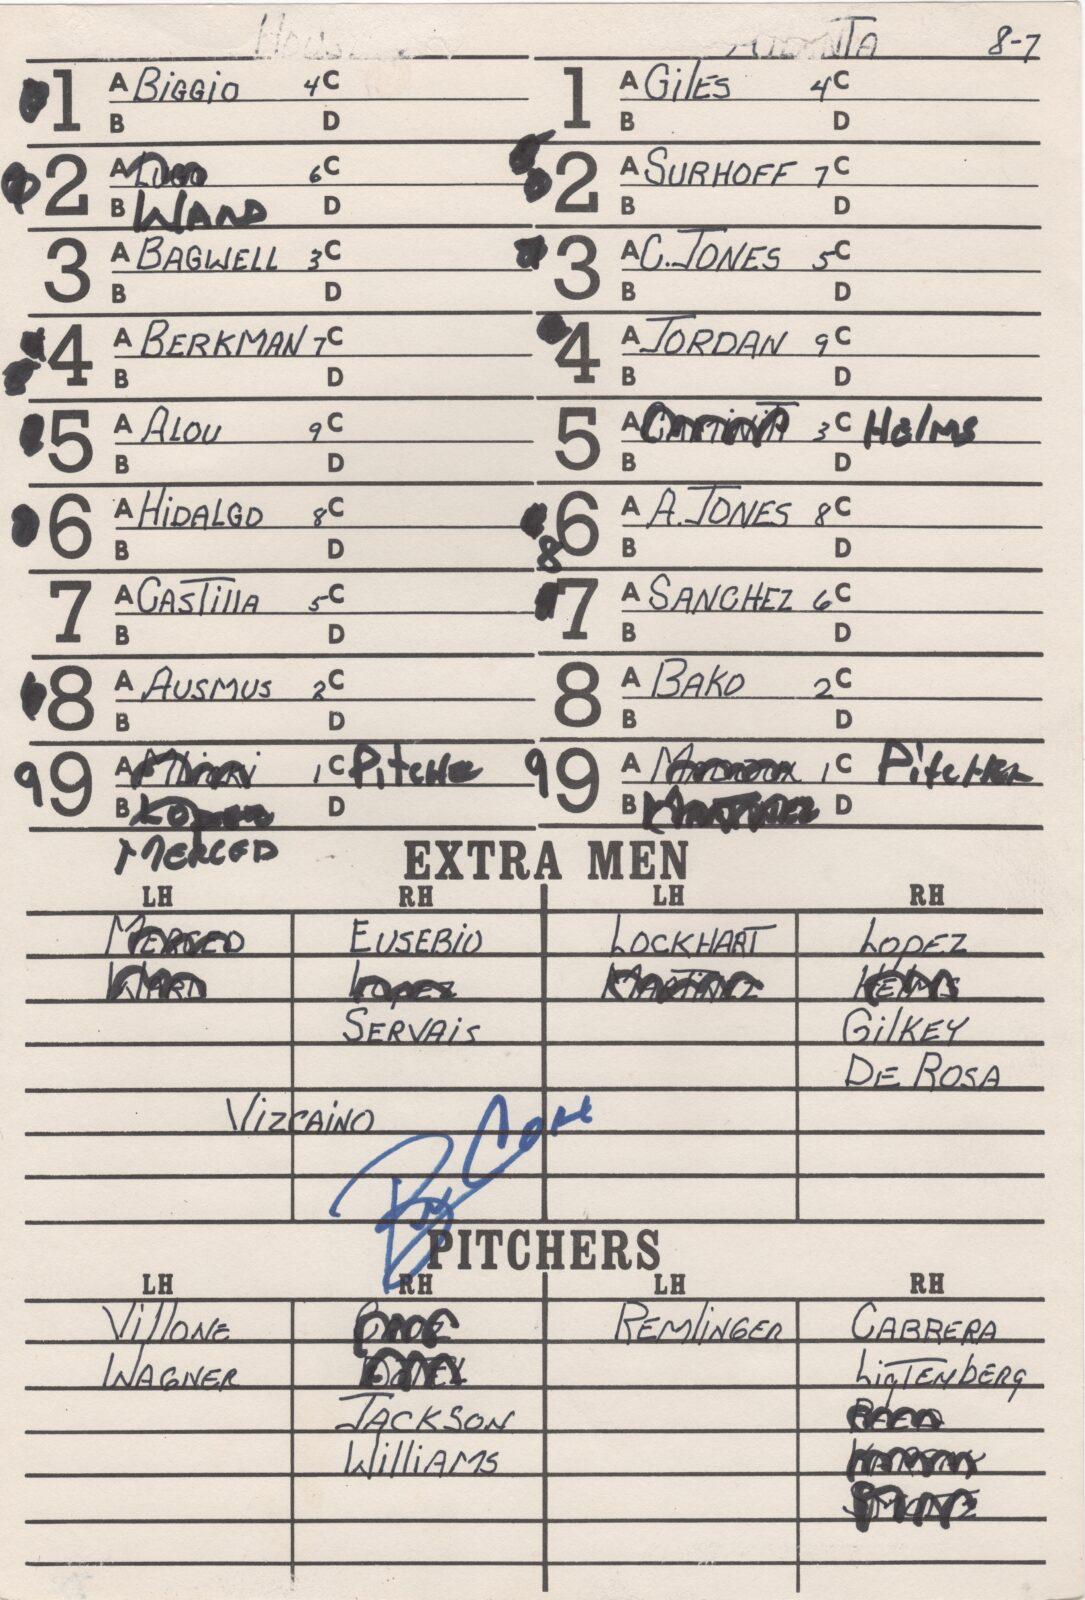 8-7
1 A Biggio 4 C
B D
1 A Giles 4 C
B D
2 A Lugo 6 C
B WARD D
2 A SURHOFF 7 C
B D
3 A BAGWELL 3 C
B D
3 A C. JONES 5 C
B D
4 A BERKMAN 7 C
B D
4 A JORDAN 9 C
B D
5 A ALOU 9 C
B D
5 A 3 C HElMS
B D
6 A HIDALGO 8 C
B D
6 A A. JONES 8 C
8 B D
7 A CASTIllA 5 C
B D
7 A SANCHEZ 6 C
B D
8 A AUSMUS 2 C
B D
8 A BAKO 2 C
B D
9 9 A 1 C Pitcher
B D
MERCED
9 9 A 1 C PitcHER
B D
EXTRA MEN
LH RH LH RH
MERCED EUSEBIO LOCKHART LOPEZ
WARD LOPEZ MARTINEZ HELMS
SERVAIS GilKEY
DE ROSA
VIZCAINO
PITCHERS
LH RH LH RH
VillONE REMLINGER CABRERA
WAGNER LigTENbERg
JACKSON REED
WilliAMS